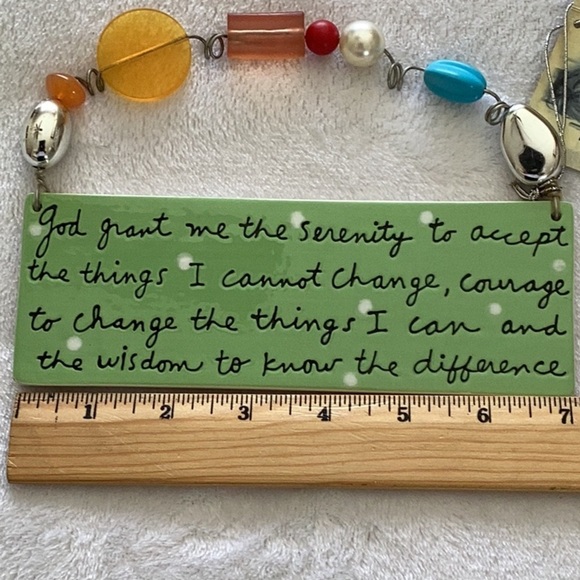 God grant me the serenity to accept
the things I cannot change, courage
to change the things I can and
the wisdom to know the difference
1 2 3 4 5 6 7